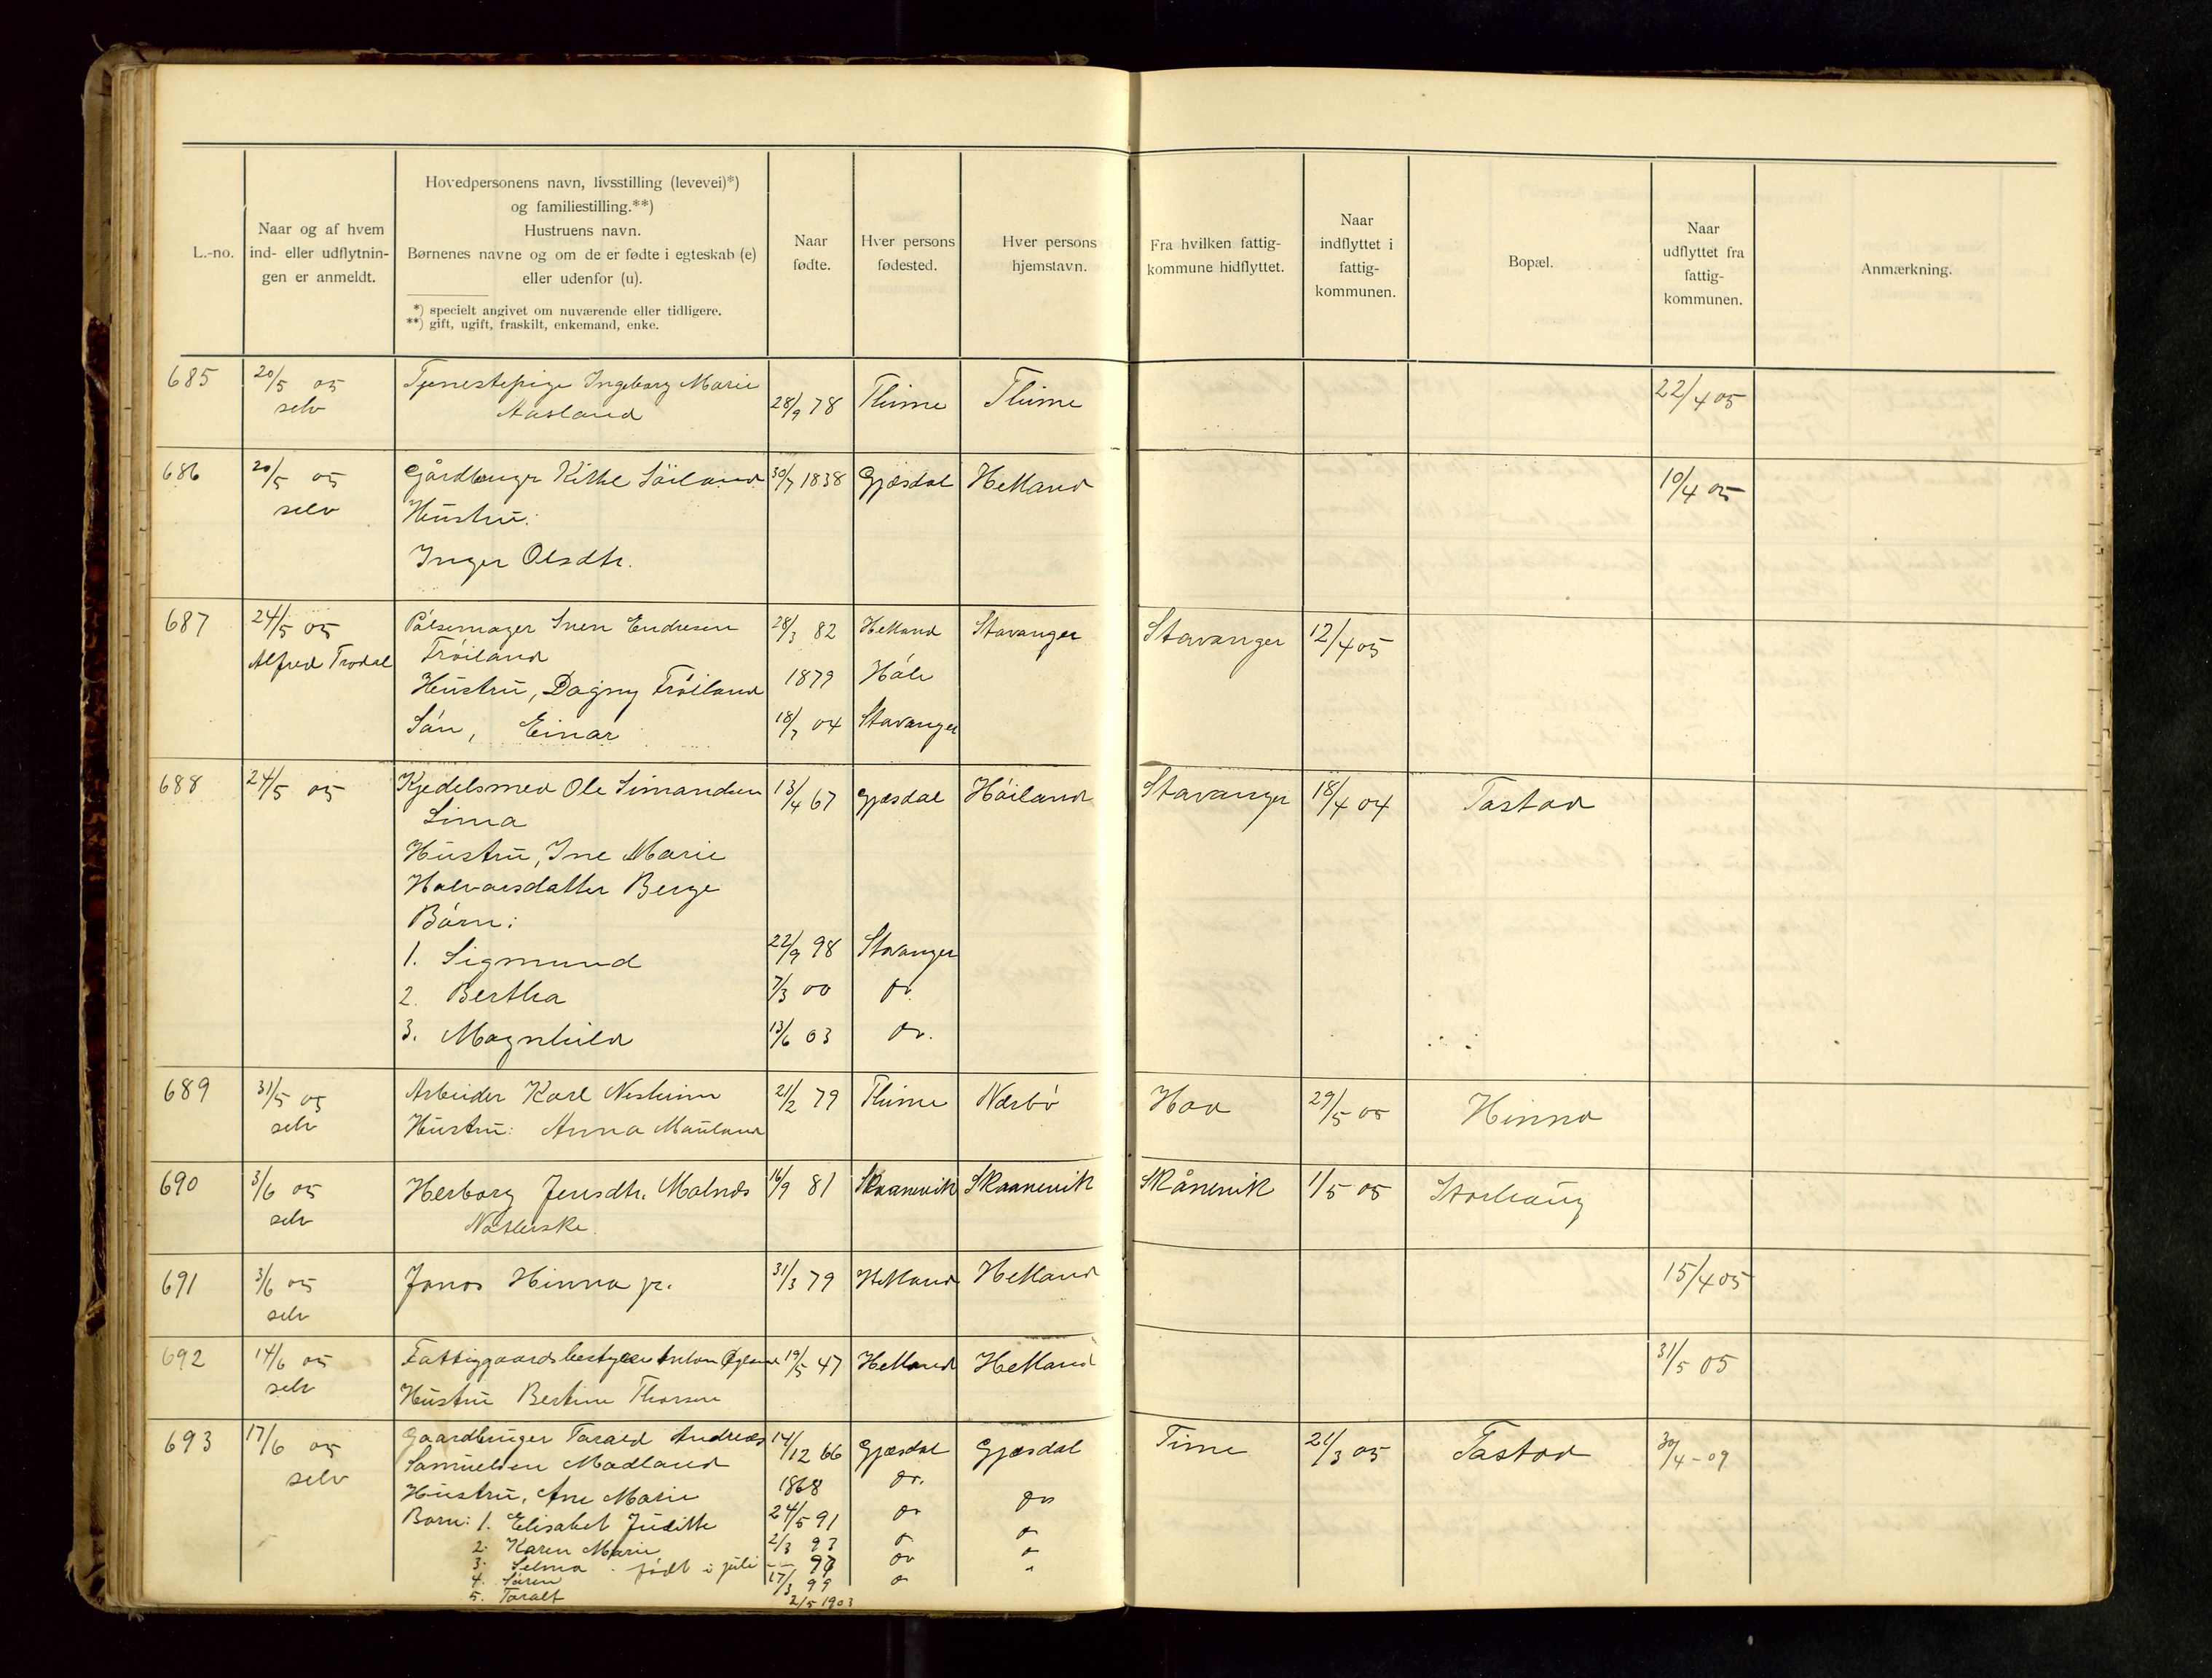 L.-no.
Naar og af hvem
ind- eller udflytnin-
gen er anmeldt.
Hovedpersonens navn, livsstilling (levevei)*)
og familiestilling.**)
Hustruens navn.
Børnenes navne og om de er fødte i egteskab (e)
eller udenfor (u).
*) specielt angivet om nuværende eller tidligere.
**) gift, ugift, fraskilt, enkemand, enke.
Naar
fødte.
Hver persons
fødested.
Hver persons
hjemstavn.
Fra hvilken fattig-
kommune hidflyttet.
Naar
indflyttet i
fattig-
kommunen.
Bopæl.
Naar
udflyttet fra
fattig-
kommunen.
Anmærkning.
685 20/5 05 Tjenestepige Ingeborg Marie
selv Aasland 28/9 78 Thime Thime 22/4 05
686 20/5 05 Gårdbruger Kittel Söiland 30/7 1838 Gjæsdal Hetland 10/4 05
selv Hustru:
Inger Olsdtr.
687 24/5 05 Pölsemager Sven Endresen 28/3 82 Hetland Stavanger Stavanger 12/4 05
Alfred Trodal Fröiland
Hustru, Dagny Fröiland 1879 Höle
Sön, Einar 18/7 04 Stavanger
688 24/5 05 Kjedelsmed Ole Simondsen 13/4 67 Gjæsdal Höiland Stavanger 18/4 04 Tastad
Lima
Hustru, Ine Marie
Halvorsdatter Berge
Börn:
1. Sigmund 22/9 98 Stavanger
2. Bertha 7/3 00 do.
3. Magnhild 13/6 03 do.
689 31/5 05 Arbeider Karl Nesheim 21/2 79 Thime Nærbö Haa 29/5 05 Hinna
selv Hustru: Anna Mauland
690 3/6 05 Herborg Jensdtr. Molnes 16/9 81 Skaanevik Skaanevik Skånevik 1/5 05 Storhaug
selv
691 3/6 05 Jonas Hinna jr. 31/3 79 Hetland Hetland 15/4 05
selv
692 14/6 05 Fattiggaardsbestyrer Anton Øglænd 19/5 47 Hetland Hetland 31/5 05
selv Hustru Bertine Thorsen
693 17/6 05 Gaardbruger Torald Andreas 14/12 66 Gjæsdal Gjæsdal Time 21/3 05 Tastad 30/4 - 09
selv Samuelsen Madland
Hustru, Ane Marie 1868 do. do
Born: 1. Elisabet Juditte 24/5 91 do
2. Karen Marie 2/3 93
3. Selma - født i juli
4. Sören 17/3 99
5. Toralf 2/5 1903